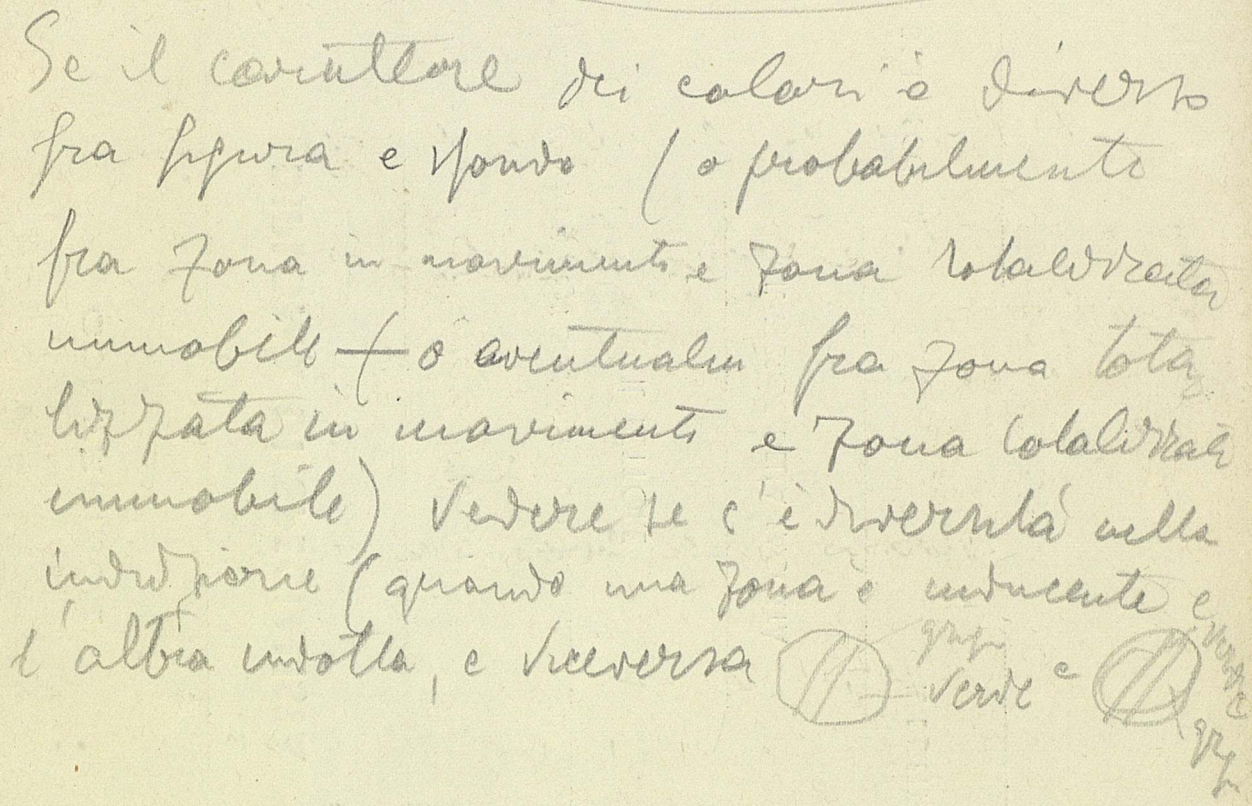 Se il carattere dei colori è diverso
fra figura e sfondo (o probabilmente
fra zona in movimento e zona totalizzata
immobile — o eventualm fra zona tota
lizzata in movimento e zona totalizzata
immobile) vedere se c'è diversità nella
induzione (quando una zona è inducente e
l'altra indotta, e viceversa grigio verde e verde grigio